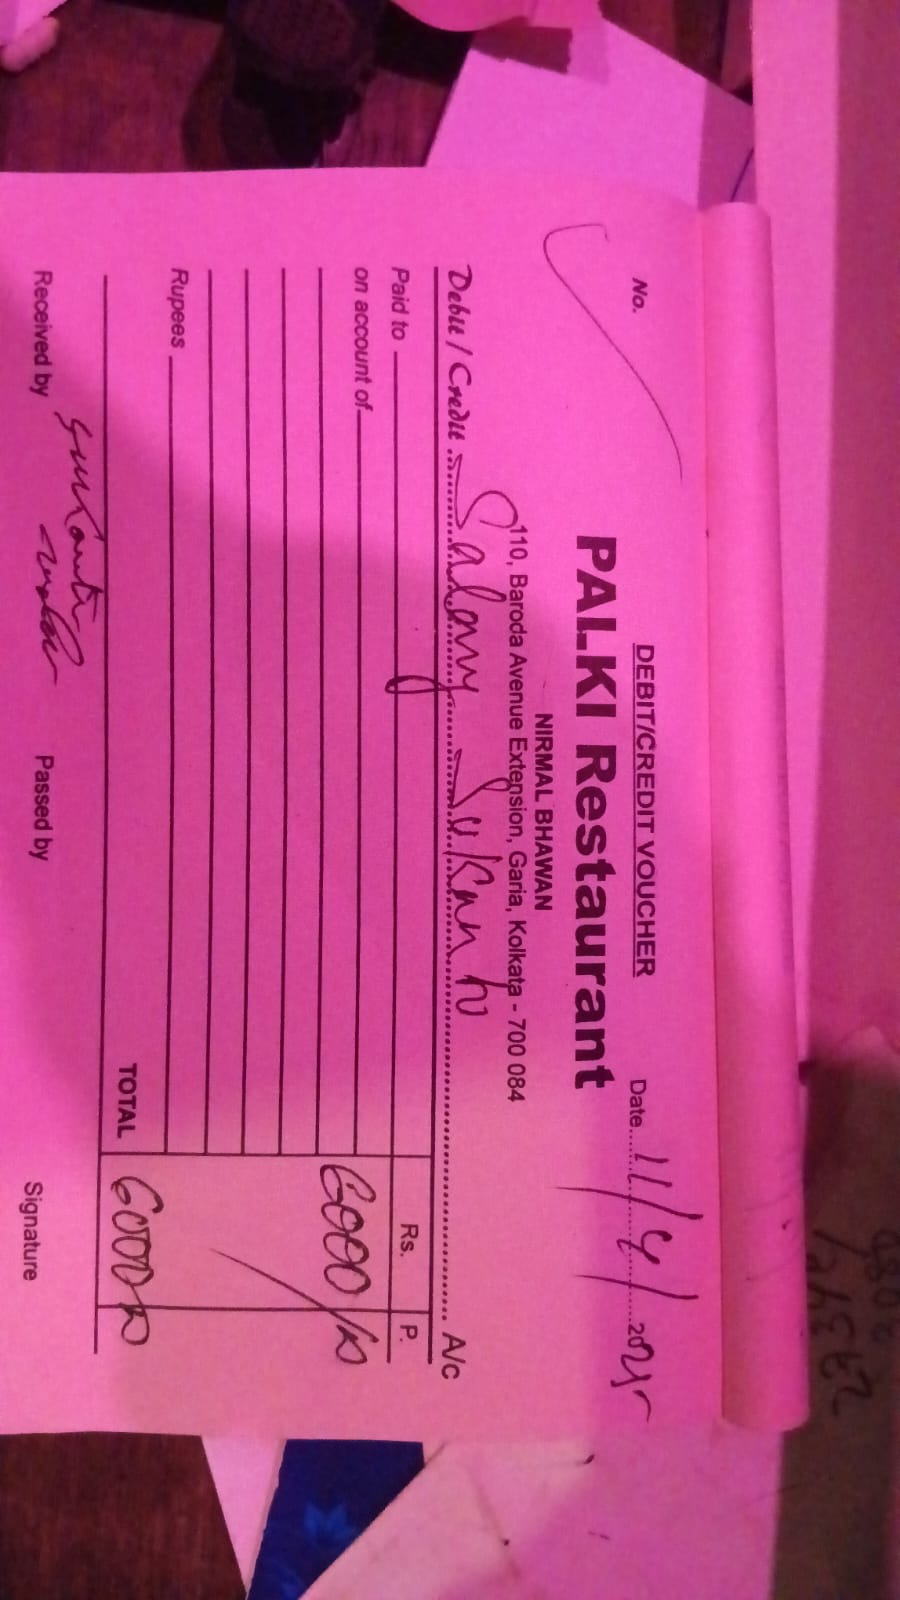 DEBIT/CREDIT VOUCHER
No.
Date 11/4/2025
PALKI Restaurant
NIRMAL BHAWAN
110, Baroda Avenue Extension, Garia, Kolkata - 700 084
Debit / Credit Salary Sukanto A/c
Paid to
Rs. P.
on account of
6000/-
Rupees
TOTAL 6000/-
Received by Sukanta
Passed by
Signature